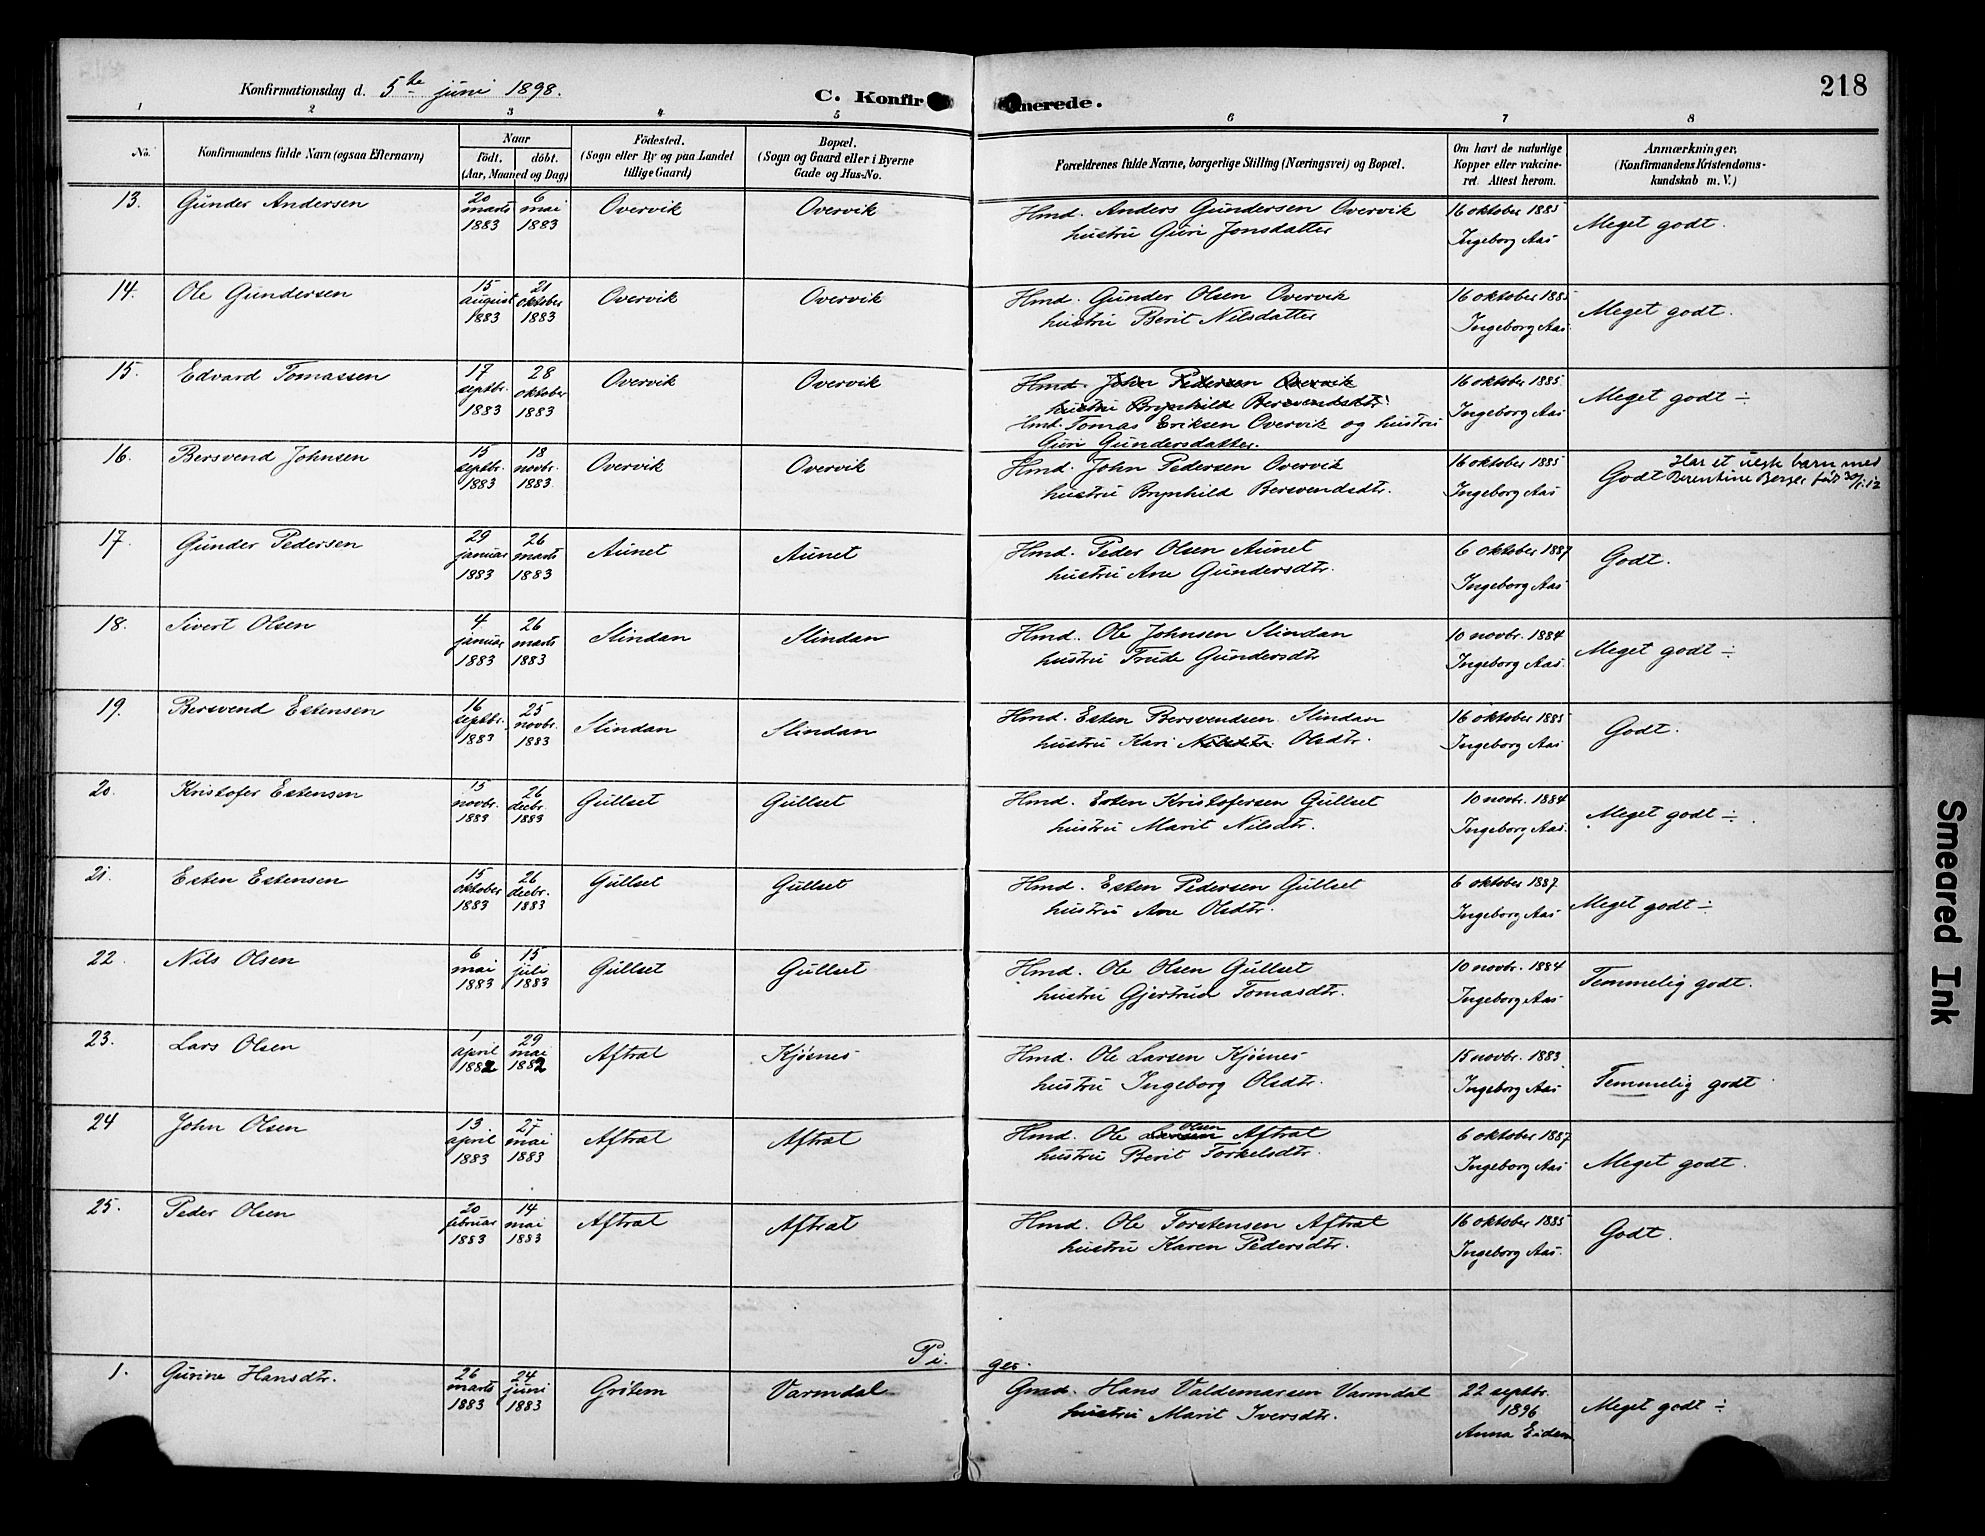 Konfirmationsdag d. 5te juni 1898.
C. Konfir
merede.
218
1 2 3 4 5 6 7 8
No.
Konfirmandens fulde Navn (ogsaa Efternavn)
Naar
födt. döbt.
(Aar, Maaned og Dag)
Födested.
(Sogn eller By og paa Landet
tillige Gaard)
Bopæl.
(Sogn og Gaard eller i Byerne
Gade og Hus-No.
Forældrenes fulde Navne, borgerlige Stilling (Næringsvei) og Bopæl.
Om havt de naturlige
Kopper eller vakcine-
ret. Attest herom.
Anmærkninger.
(Konfirmandens Kristendoms-
kundskab m. V.)
13. Gunder Andersen
20 marts 1883
6 mai 1883
Overvik
Overvik
Hmd. Anders Gundersen Overvik
hustru Guri Jonsdatter
16 oktober 1885
Ingeborg Aas
Meget godt.
14. Ole Gundersen
15 august 1883
21 oktober 1883
Overvik
Overvik
Hmd. Gunder Olsen Overvik
hustru Berit Nilsdatter
16 oktober 1885
Ingeborg Aas.
Meget godt.
15. Edvard Tomassen
17 septbr. 1883
28 oktober 1883
Overvik
Overvik
Hmd. John Pedersen Overvik
hustru Brynhild Bersvendsdtr.
Hmd. Tomas Eriksen Overvik og hustru
Guri Gundersdatter.
16 oktober 1885
Ingeborg Aas
Meget godt ÷
16. Bersvend Johnsen
15 septbr. 1883
18 novbr. 1883
Overvik
Overvik
Hmd. John Pedersen Overvik
hustru Brynhild Bersvendsdtr.
16 oktober 1885
Ingeborg Aas
Godt
Har et uegte barn med
Berentine Berger født 30/1.12
17. Gunder Pedersen
29 januar 1883
26 marts 1883
Aunet
Aunet
Hmd. Peder Olsen Aunet
hustru Ane Gundersdtr.
6 oktober 1887
Ingeborg Aas
Godt.
18. Sivert Olsen
4 januar 1883
26 marts 1883
Slindan
Slindan
Hmd. Ole Johnsen Slindan
hustru Trude Gundersdtr
10 novbr. 1884
Ingeborg Aas.
Meget godt ÷
19. Bersvend Estensen
16 septbr. 1883
25 novbr. 1883
Slindan
Slindan
Hmd. Esten Bersvendsen Slindan
hustru Kari Nilsdtr. Olsdtr.
16 oktober 1885
Ingeborg Aas
Godt.
20. Kristofer Estensen
15 novbr. 1883
26 decbr. 1883
Gullset
Gullset
Hmd. Esten Kristofersen Gullset
hustru Marit Nilsdtr.
10 novbr. 1884
Ingeborg Aas.
Meget godt ÷.
21. Esten Estensen
15 oktober 1883
26 decbr. 1883
Gullset
Gullset
Hmd. Esten Pedersen Gullset
hustru Ane Olsdtr.
6 oktober 1887
Ingeborg Aas
Meget godt ÷
22. Nils Olsen
6 mai 1883
15 juli 1883
Gullset
Gullset
Hmd. Ole Olsen Gullset
hustru Gjertrud Tomasdtr.
10 novbr. 1884
Ingeborg Aas.
Temmelig godt.
23. Lars Olsen
1 april 1882
29 mai 1882
Aftrat
Kjøsnes
Hmd. Ole Larsen Kjøsnes
hustru Ingeborg Olsdtr.
15 novbr. 1883
Ingeborg Aas
Temmelig godt
24 John Olsen
13 april 1883
27 mai 1883
Aftrat
Aftrat
Hmd. Ole Larsen Olsen Aftrat
hustru Berit Torkelsdtr.
6 oktober 1887
Ingeborg Aas
Meget godt.
25. Peder Olsen
20 februar 1883
14 mai 1883
Aftrat
Aftrat
Hmd. Ole Torstensen Aftrat
hustru Karen Pedersdtr.
16 oktober 1885
Ingeborg Aas.
Godt.
Pi.ger.
1. Gurine Hansdtr.
26 marts 1883
24 juni 1883
Grötem
Varmdal
Gmd. Hans Valdemarsen Varmdal
hustru Marit Iversdtr.
22 septbr. 1896
Anna Eidem
Meget godt ÷
Smeared Ink